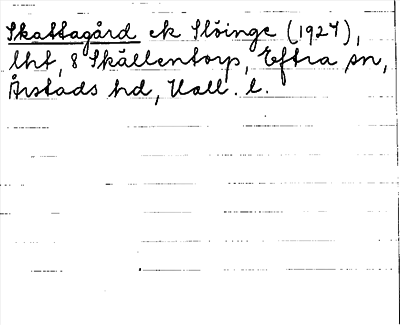 Skattagård ek Slöinge (1927),
lht, 8 Skällentorp, Eftra sn,
Årstads hd, Hall. l.